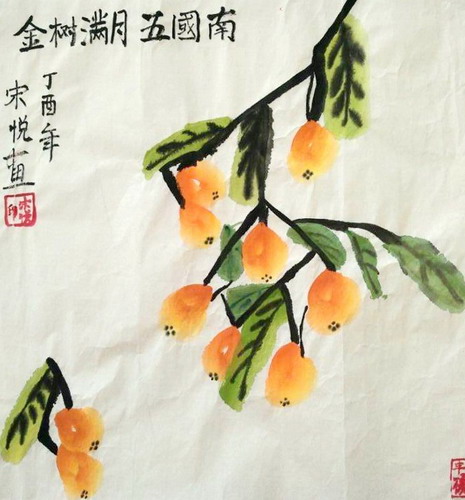 南國五月满树金
丁酉年
宋悦画